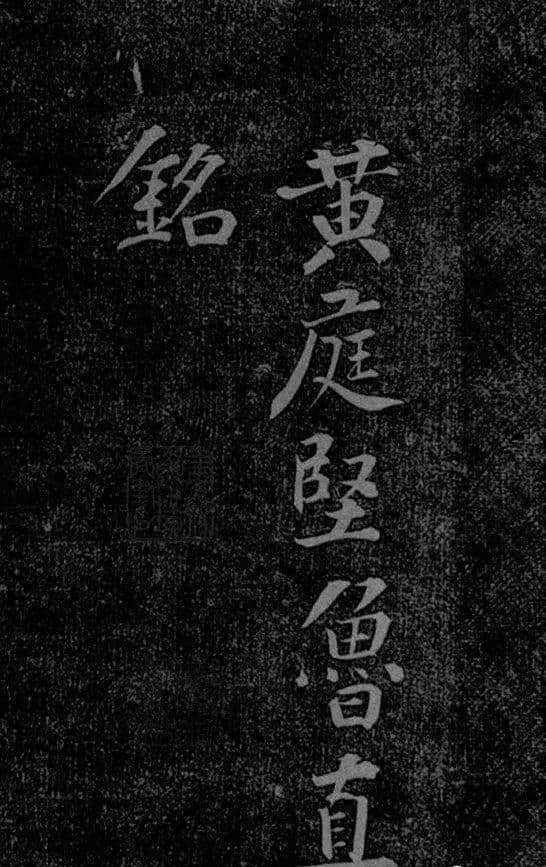 黄庭堅魯直
銘